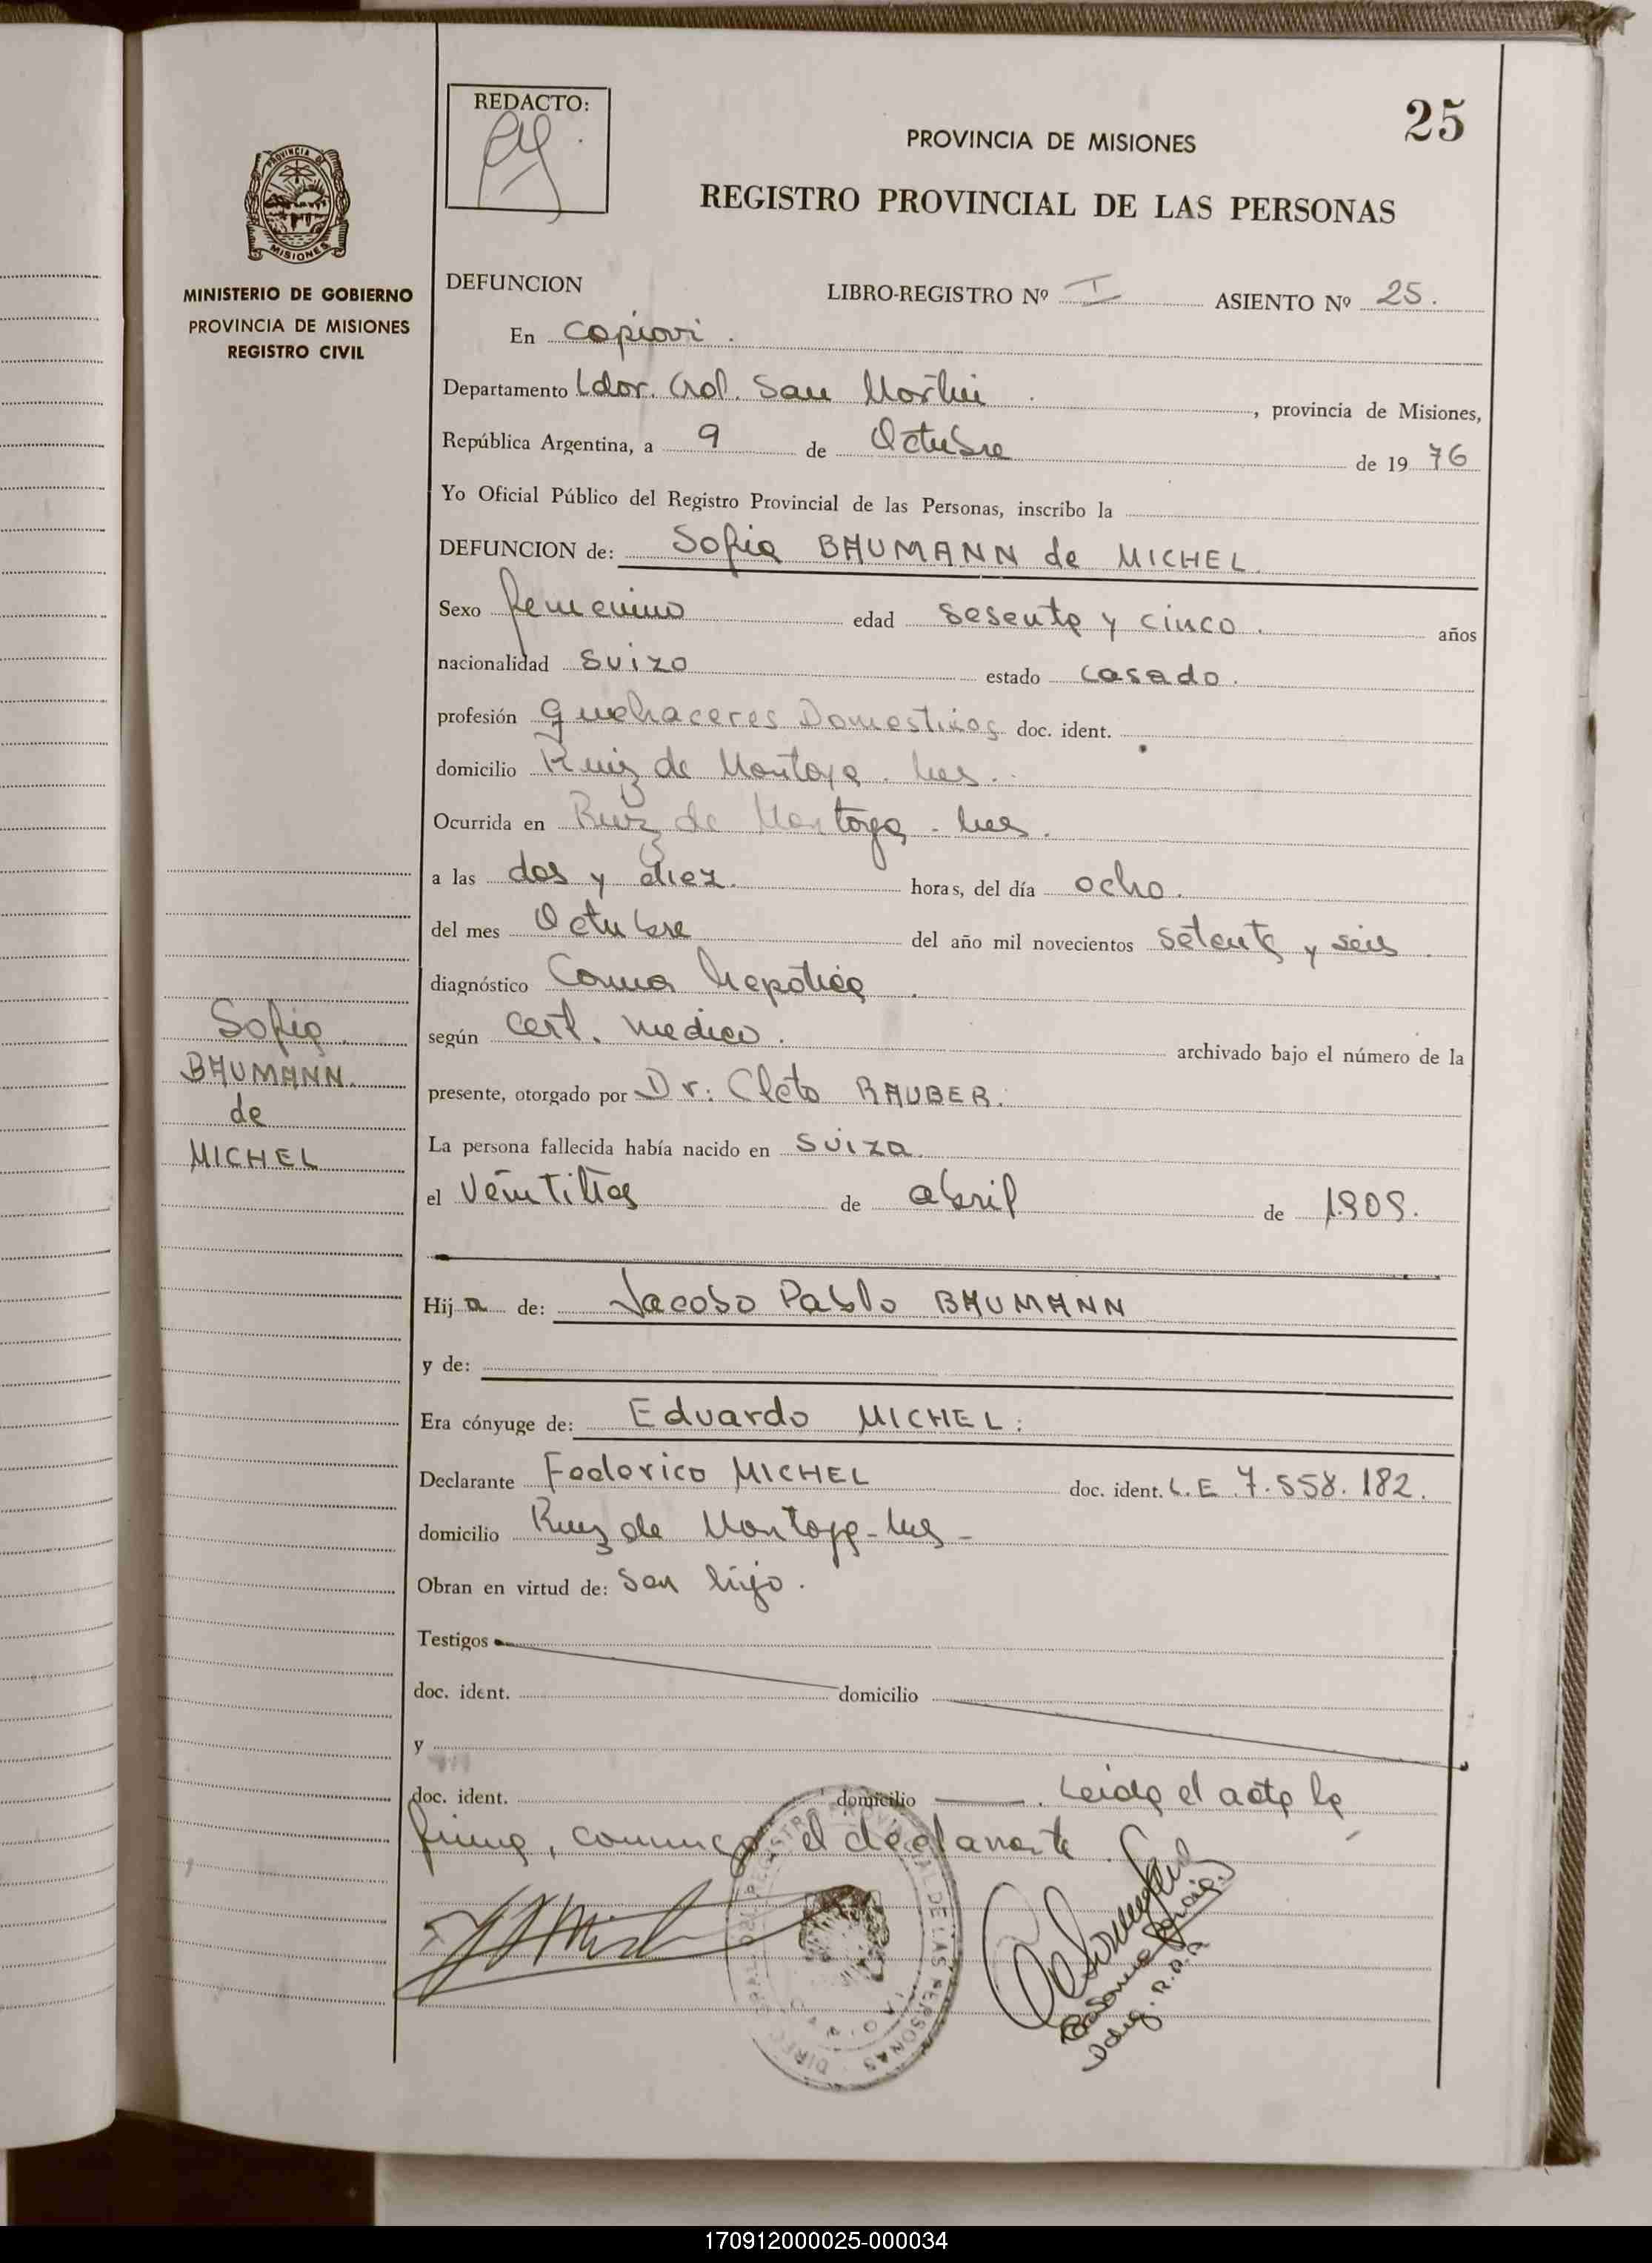 25
REDACTO:
PROVINCIA DE MISIONES
REGISTRO PROVINCIAL DE LAS PERSONAS
PROVINCIA DE
MISIONES
MINISTERIO DE GOBIERNO
PROVINCIA DE MISIONES
REGISTRO CIVIL
DEFUNCION LIBRO-REGISTRO Nº I ASIENTO Nº 25.
En Capiovi.
Departamento Ldor. Gral. San Martin, provincia de Misiones,
República Argentina, a 9 de Octubre de 1976
Yo Oficial Público del Registro Provincial de las Personas, inscribo la
DEFUNCION de: Sofia BAUMANN de MICHEL.
Sexo femenino edad sesenta y cinco. años
nacionalidad Suiza estado casada.
profesión Quehaceres Domesticos doc. ident.
domicilio Ruiz de Montoya. Mes.
Ocurrida en Ruiz de Montoya - Mes.
a las dos y diez. horas, del día ocho.
del mes Octubre del año mil novecientos setenta y seis.
diagnóstico Coma hepatica.
según cert. medico. archivado bajo el número de la
presente, otorgado por Dr: Cleto RAUBER.
La persona fallecida había nacido en Suiza.
el Veintitres de abril de 1.909.
Hija de: Jacobo Pablo BAUMANN
y de:
Era cónyuge de: Eduardo MICHEL.
Declarante Federico MICHEL doc. ident. L.E 7.558.182.
domicilio Ruiz de Montoya - Mes -
Obran en virtud de: Son hijo.
Testigos
doc. ident. domicilio
y
doc. ident. domicilio . Leida el acta la
firma, conmigo el declarante.
Sofia
BAUMANN.
de
MICHEL
170912000025-000034